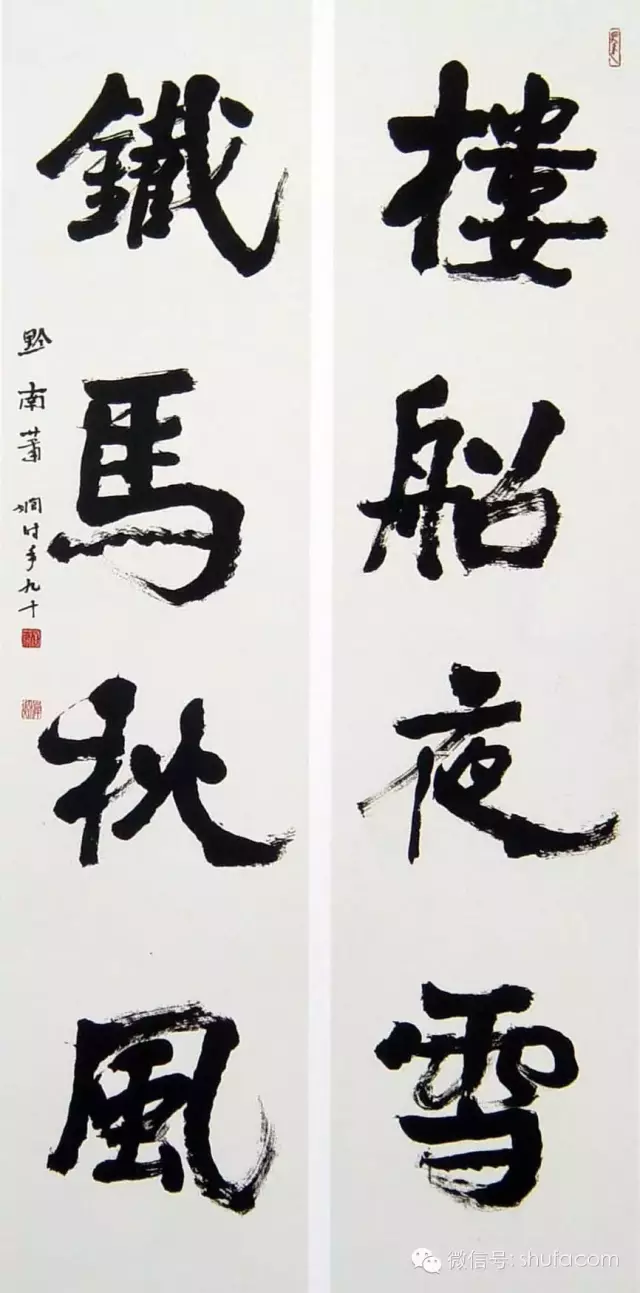 樓船夜雪
鐵馬秋風
黔南蕭嫻時年九十
微信号: shufacom